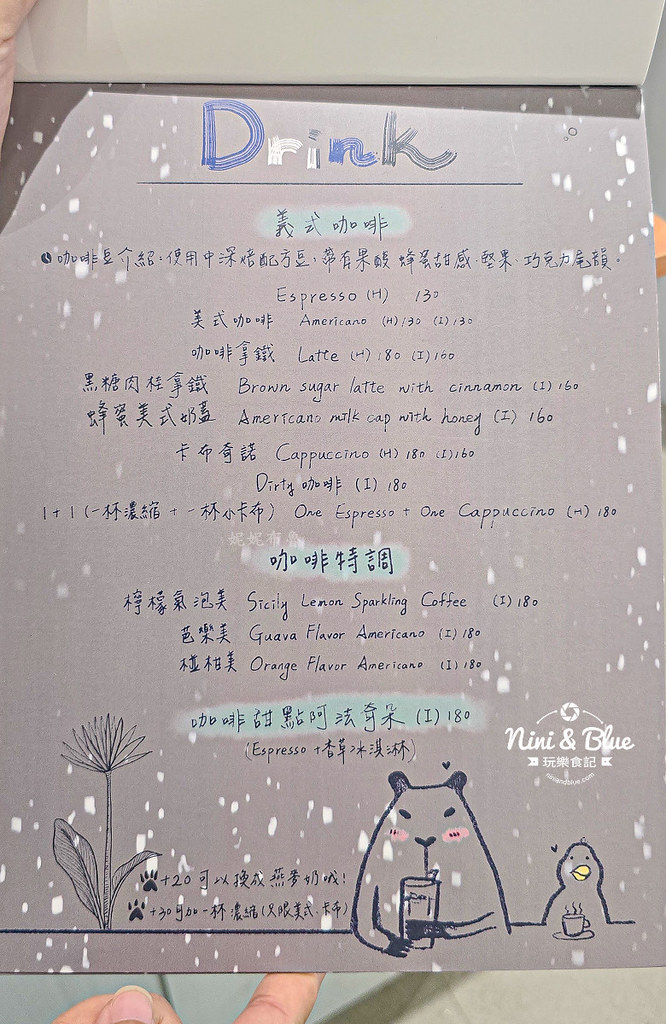 Drink
義式咖啡
咖啡豆介紹:使用中深焙配方豆,帶有果酸.蜂蜜甜感.堅果.巧克力尾韻。
Espresso (H) 130
美式咖啡 Americano (H) 130 (I) 130
咖啡拿鐵 Latte (H) 180 (I) 160
黑糖肉桂拿鐵 Brown sugar latte with cinnamon (I) 160
蜂蜜美式奶蓋 Americano milk cap with honey (I) 160
卡布奇諾 Cappuccino (H) 180 (I) 160
Dirty 咖啡 (I) 180
1+1 (一杯濃縮 + 一杯小卡布) One Espresso + One Cappuccino (H) 180
妮妮布魯
咖啡特調
檸檬氣泡美 Sicily Lemon Sparkling Coffee (I) 180
芭樂美 Guava Flavor Americano (I) 180
椪柑美 Orange Flavor Americano (I) 180
咖啡甜點阿法奇朵 (I) 180
(Espresso +香草冰淇淋)
Nini & Blue
玩樂食記
niniandblue.com
+20可以換成燕麥奶哦!
+30可加一杯濃縮(只限美式.卡布)